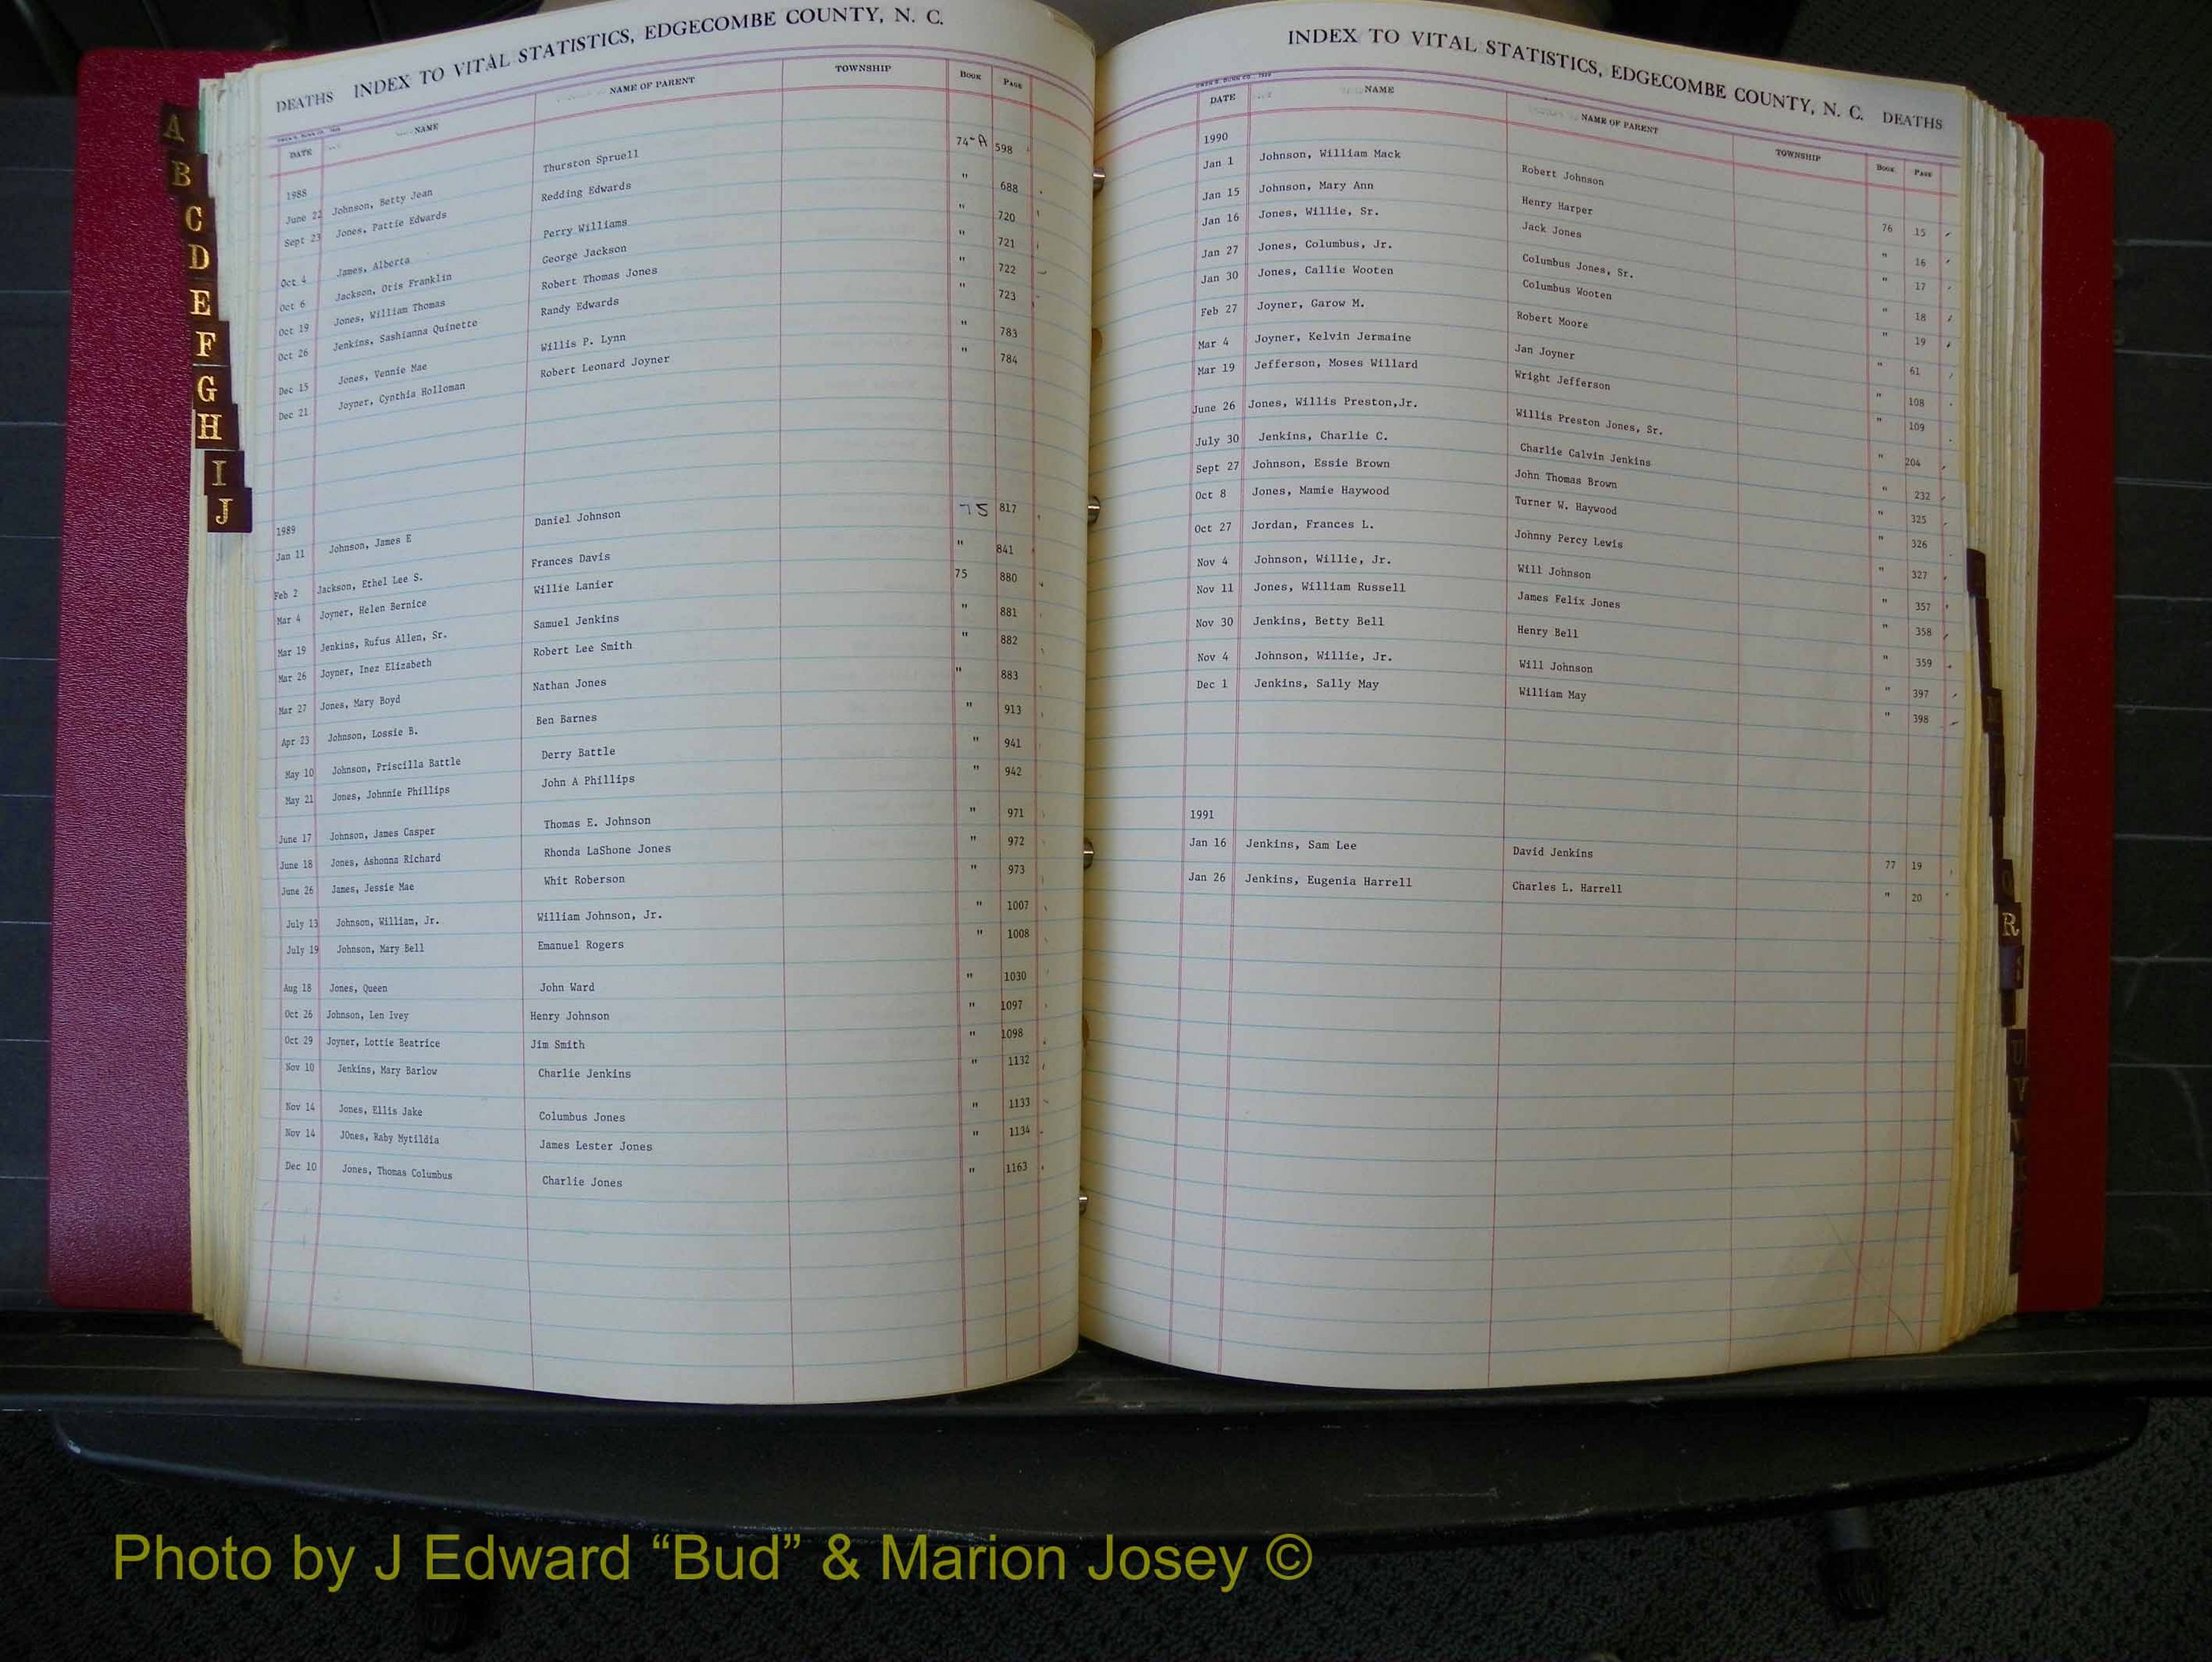 DEATHS INDEX TO VITAL STATISTICS, EDGECOMBE COUNTY, N. C.
DATE NAME NAME OF PARENT TOWNSHIP BOOK PAGE
1988
June 22 Johnson, Betty Jean Thurston Spruell 74-A 598
Sept 23 Jones, Pattie Edwards Redding Edwards " 688
Oct 4 James, Alberta Perry Williams " 720
Oct 6 Jackson, Otis Franklin George Jackson " 721
Oct 19 Jones, William Thomas Robert Thomas Jones " 722
Oct 26 Jenkins, Sashianna Quinette Randy Edwards " 723
Dec 15 Jones, Vennie Mae Willis P. Lynn " 783
Dec 21 Joyner, Cynthia Holloman Robert Leonard Joyner " 784
1989
Jan 11 Johnson, James E Daniel Johnson 75 817
Feb 2 Jackson, Ethel Lee S. Frances Davis " 841
Mar 4 Joyner, Helen Bernice Willie Lanier 75 880
Mar 19 Jenkins, Rufus Allen, Sr. Samuel Jenkins " 881
Mar 26 Joyner, Inez Elizabeth Robert Lee Smith " 882
Mar 27 Jones, Mary Boyd Nathan Jones " 883
Apr 23 Johnson, Lossie B. Ben Barnes " 913
May 10 Johnson, Priscilla Battle Derry Battle " 941
May 21 Jones, Johnnie Phillips John A Phillips " 942
June 17 Johnson, James Casper Thomas E. Johnson " 971
June 18 Jones, Ashonna Richard Rhonda LaShone Jones " 972
June 26 James, Jessie Mae Whit Roberson " 973
July 13 Johnson, William, Jr. William Johnson, Jr. " 1007
July 19 Johnson, Mary Bell Emanuel Rogers " 1008
Aug 18 Jones, Queen John Ward " 1030
Oct 26 Johnson, Len Ivey Henry Johnson " 1097
Oct 29 Joyner, Lottie Beatrice Jim Smith " 1098
Nov 10 Jenkins, Mary Barlow Charlie Jenkins " 1132
Nov 14 Jones, Ellis Jake Columbus Jones " 1133
Nov 14 JOnes, Raby Mytildia James Lester Jones " 1134
Dec 10 Jones, Thomas Columbus Charlie Jones " 1163
A
B
C
D
E
F
G
H
I
J
INDEX TO VITAL STATISTICS, EDGECOMBE COUNTY, N. C. DEATHS
DATE NAME NAME OF PARENT TOWNSHIP BOOK PAGE
1990
Jan 1 Johnson, William Mack Robert Johnson 76 15
Jan 15 Johnson, Mary Ann Henry Harper " 16
Jan 16 Jones, Willie, Sr. Jack Jones " 17
Jan 27 Jones, Columbus, Jr. Columbus Jones, Sr. " 18
Jan 30 Jones, Callie Wooten Columbus Wooten " 19
Feb 27 Joyner, Garow M. Robert Moore " 61
Mar 4 Joyner, Kelvin Jermaine Jan Joyner " 108
Mar 19 Jefferson, Moses Willard Wright Jefferson " 109
June 26 Jones, Willis Preston,Jr. Willis Preston Jones, Sr. " 204
July 30 Jenkins, Charlie C. Charlie Calvin Jenkins " 232
Sept 27 Johnson, Essie Brown John Thomas Brown " 325
Oct 8 Jones, Mamie Haywood Turner W. Haywood " 326
Oct 27 Jordan, Frances L. Johnny Percy Lewis " 327
Nov 4 Johnson, Willie, Jr. Will Johnson " 357
Nov 11 Jones, William Russell James Felix Jones " 358
Nov 30 Jenkins, Betty Bell Henry Bell " 359
Nov 4 Johnson, Willie, Jr. Will Johnson " 397
Dec 1 Jenkins, Sally May William May " 398
1991
Jan 16 Jenkins, Sam Lee David Jenkins 77 19
Jan 26 Jenkins, Eugenia Harrell Charles L. Harrell " 20
R
U
V
Photo by J Edward “Bud” & Marion Josey ©